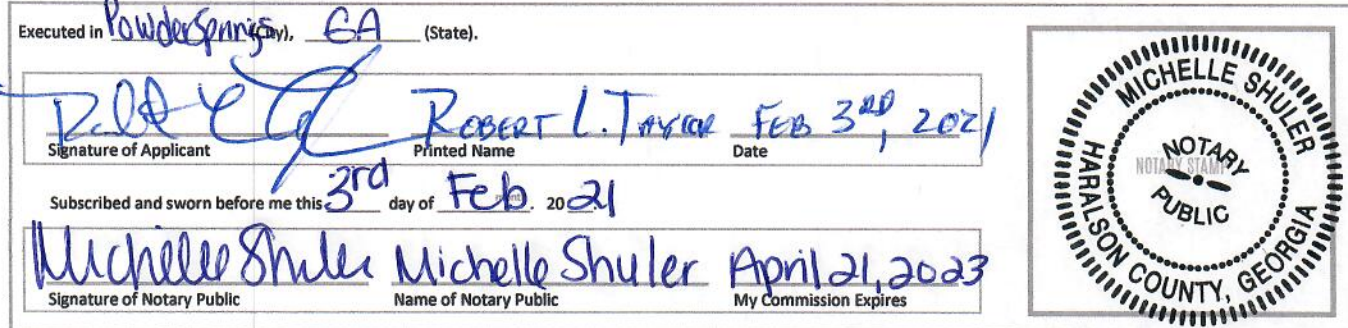 Executed in Powder Springs (City), GA (State).
Robert L. Taylor Feb 3rd, 2021
Signature of Applicant Printed Name Date
Subscribed and sworn before me this 3rd day of Feb. 2021
Michelle Shuler Michelle Shuler April 21, 2023
Signature of Notary Public Name of Notary Public My Commission Expires
MICHELLE SHULER
NOTARY
NOTARY STAMP
PUBLIC
HARALSON COUNTY, GEORGIA